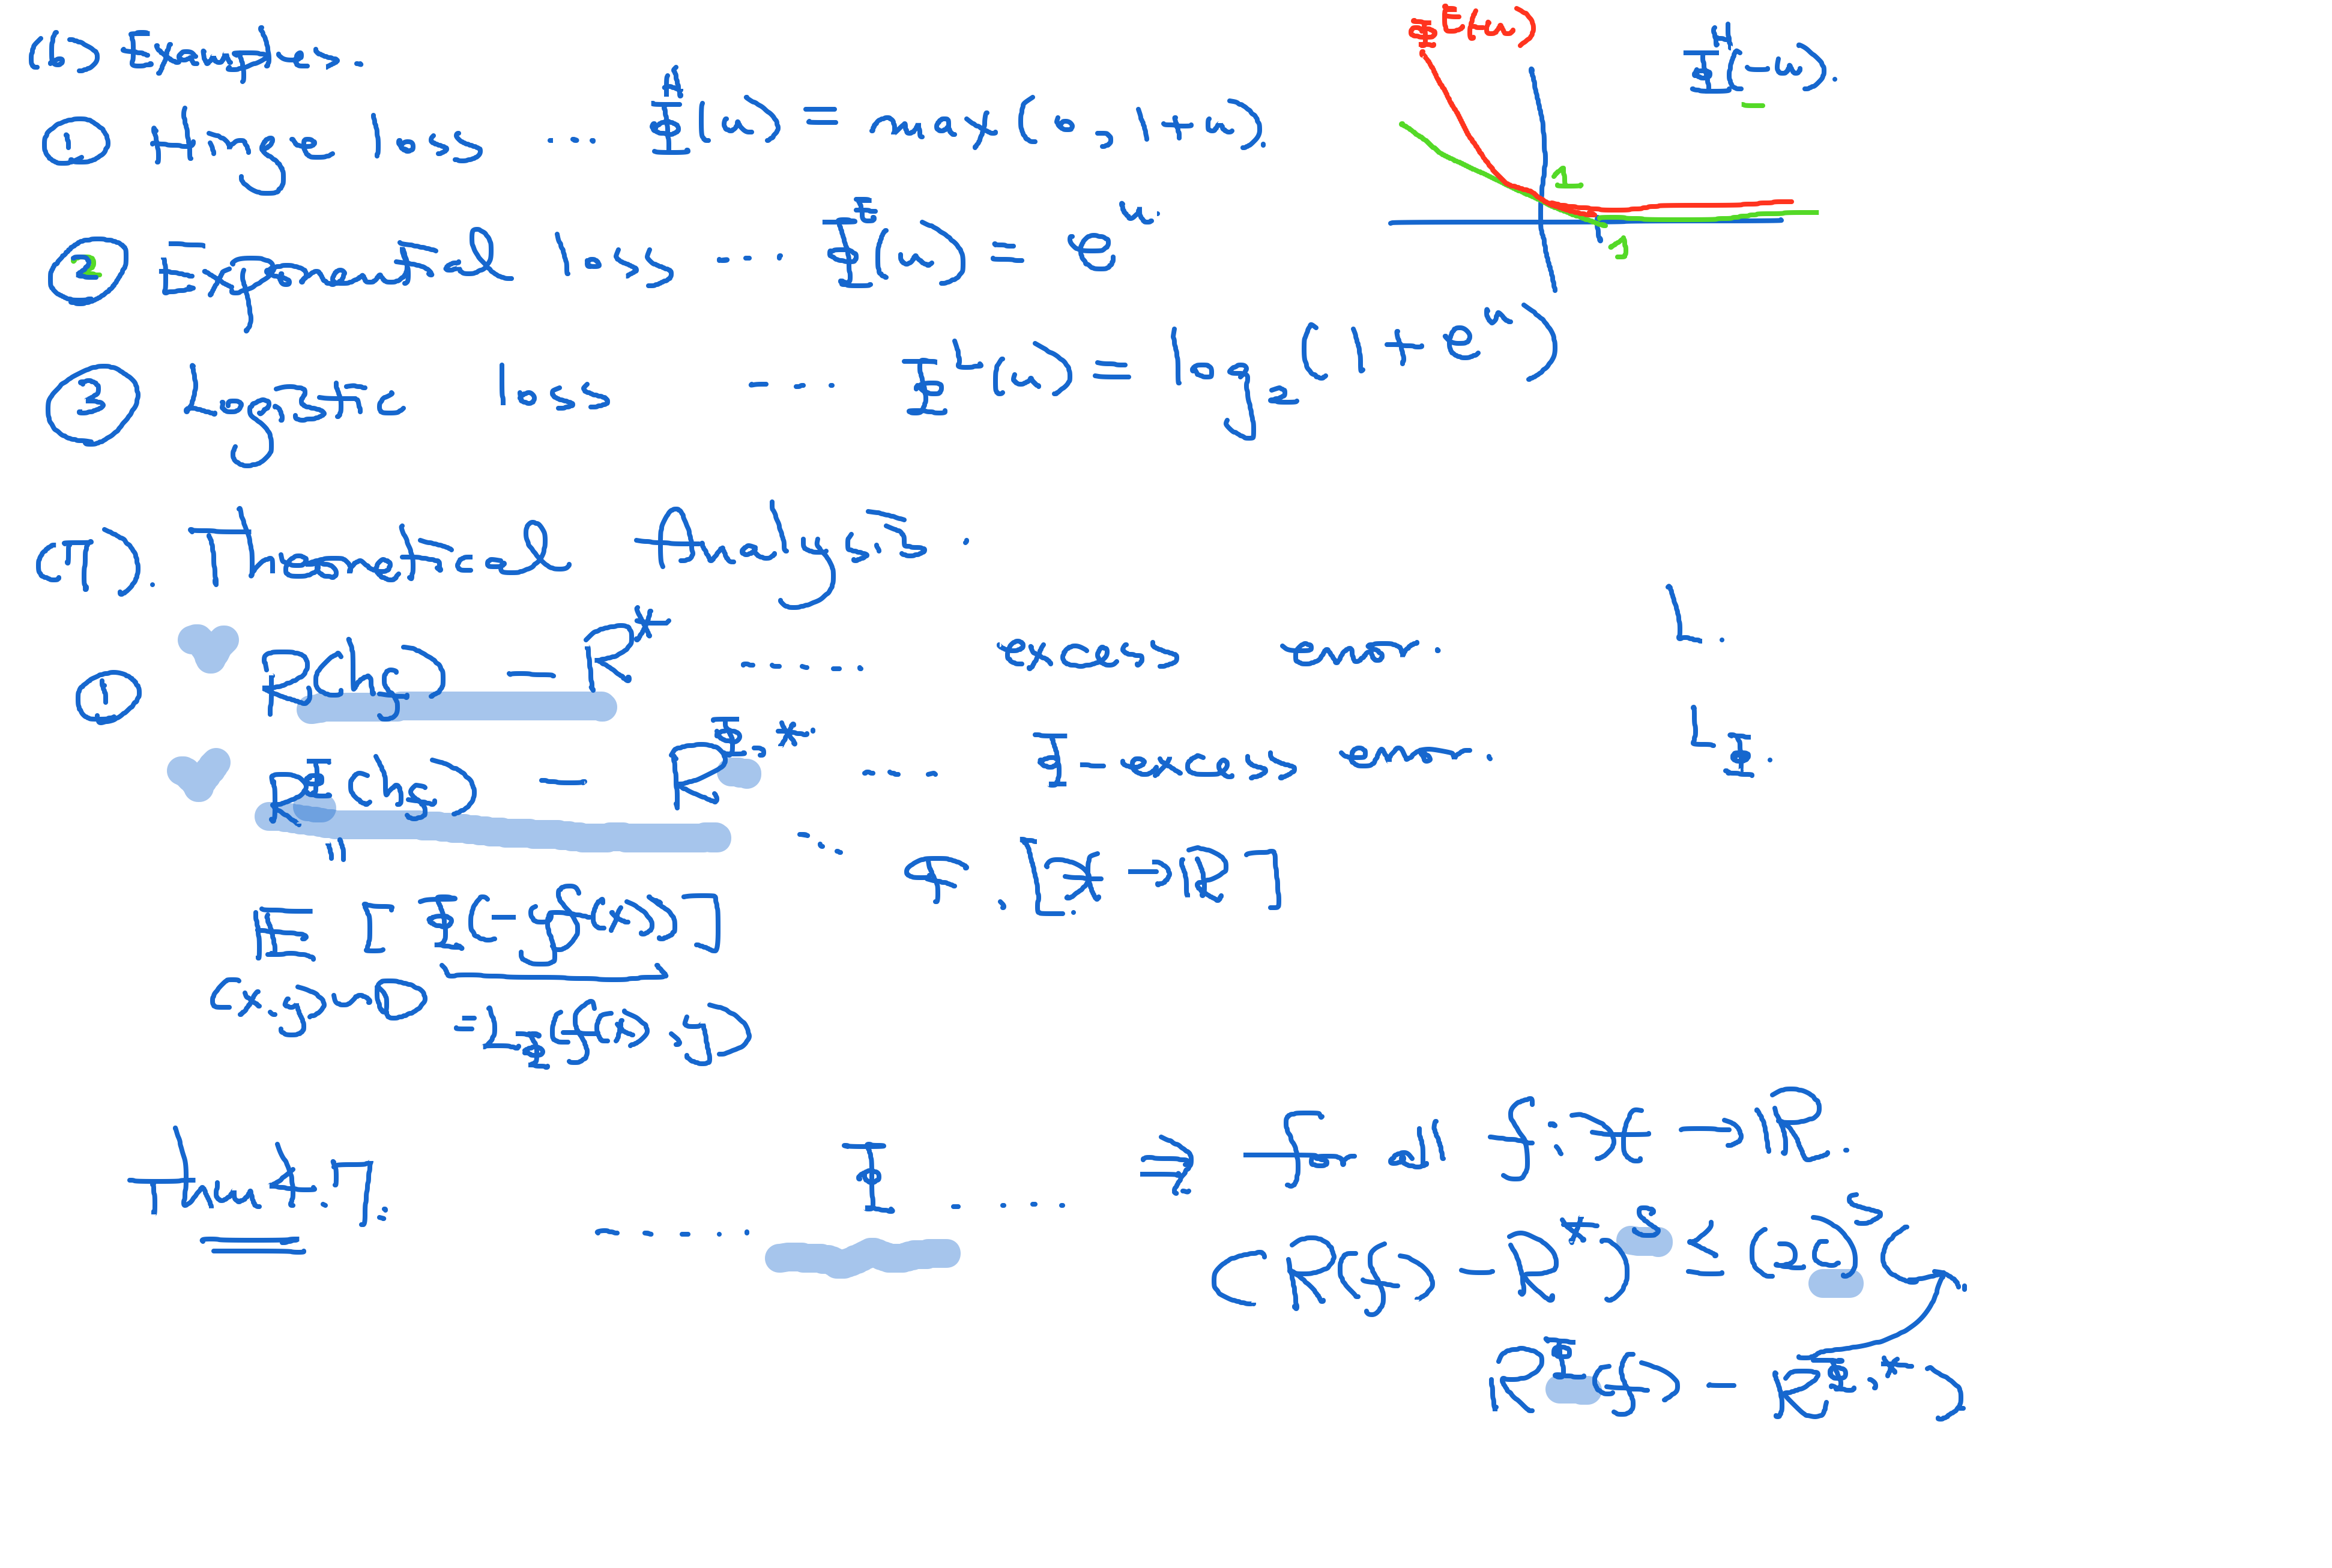 (b) Examples.
① Hinge loss ... Φ^H(u) = max(0, 1+u).
② Exponential loss .... Φ^E(u) = e^u.
③ Logistic loss .... Φ^L(u) = log₂(1 + e^u)
Φ^E(-u)
Φ^H(-u).
1
1
(c). Theoretical Analysis.
① R(h_f) - R* ..... excess error. L.
R^Φ(h_f) - R^{Φ,*} .... Φ-excess error. L_Φ.
"
.. f. [X → R]
E [Φ(-yf(x))]
(x,y)~D
= L_Φ(f(x), y)
..... Φ ....
⇒ for all f: X → R.
(R(f) - R*)^s ≤ (2c)^s (
R^Φ(f) - R^{Φ,*})